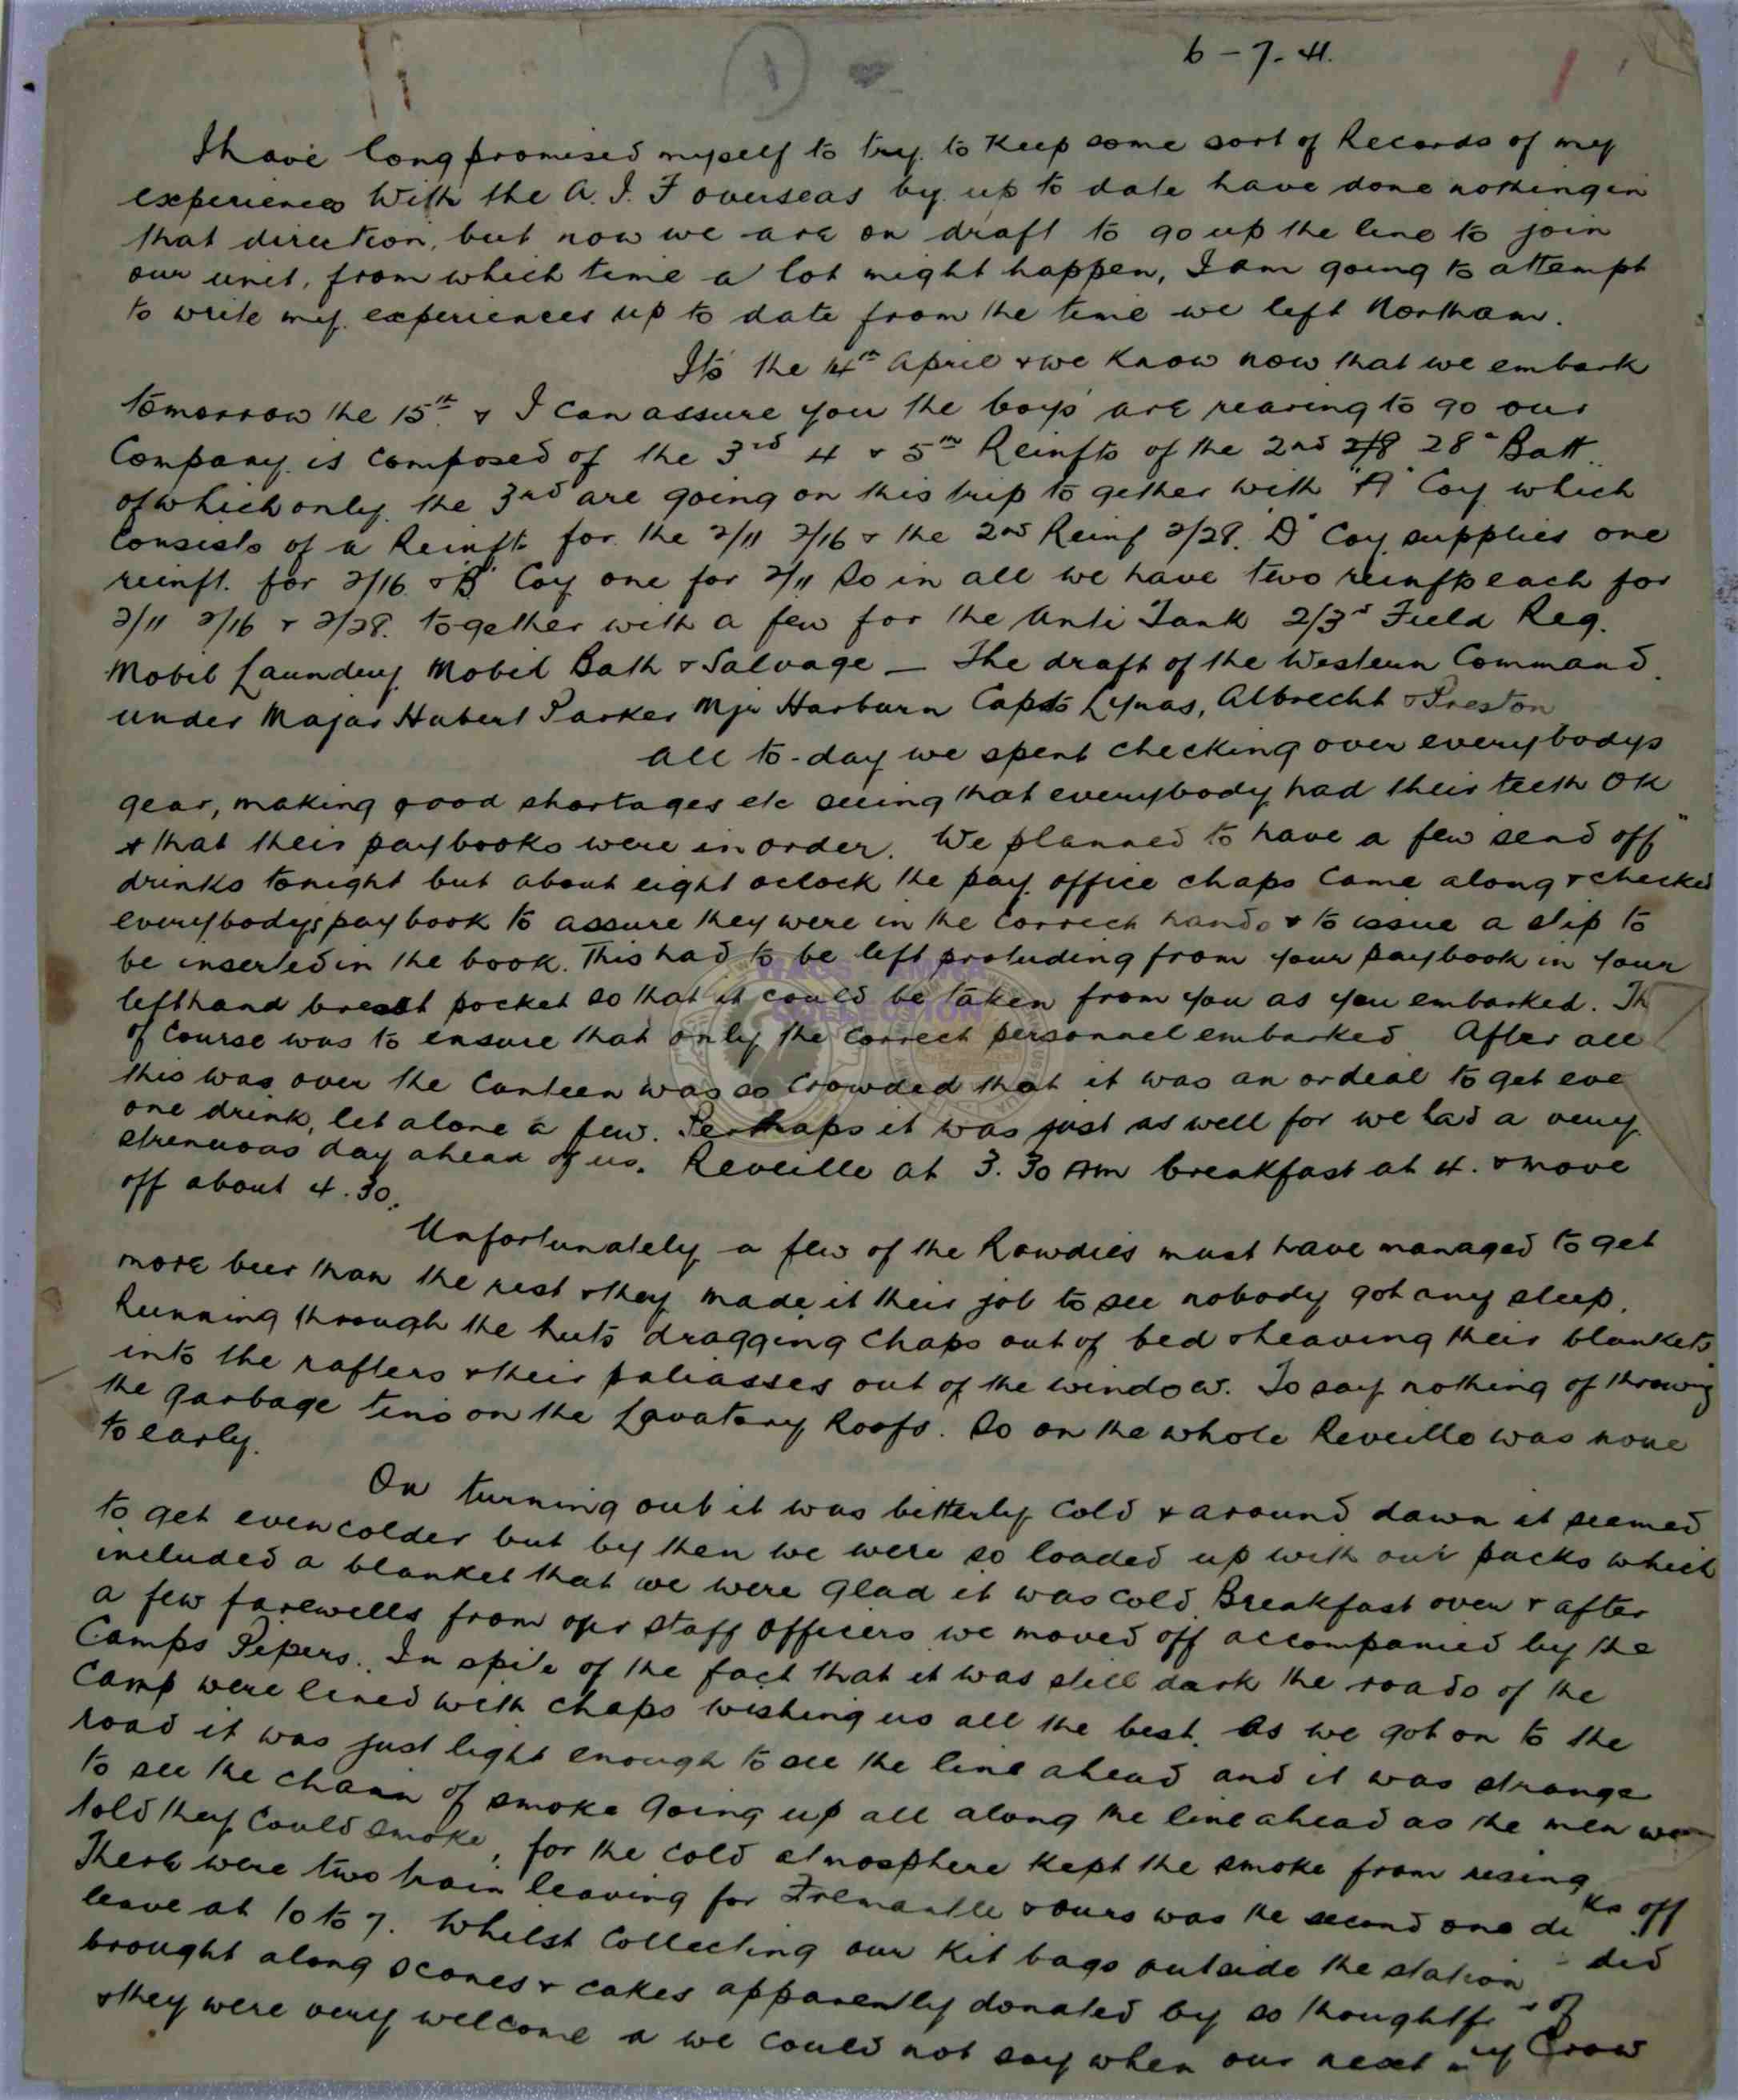 1
6-7-41.
I have long promised myself to try to keep some sort of Records of my
experiences With the A.I.F overseas by up to date have done nothing in
that direction, but now we are on draft to go up the line to join
our unit, from which time a lot might happen, I am going to attempt
to write my experiences up to date from the time we left Northam.
Its the 14th April & we know now that we embark
tomorrow the 15th. & I can assure you the boys are rearing to go our
Company is composed of the 3rd 4 & 5th Reinfts of the 2nd 28 Batt.
of which only the 3rd are going on this trip together with "A" Coy which
consists of a Reinft for the 2/11 2/16 & the 2nd Reinf 2/28. "D" Coy supplies one
reinft. for 2/16 & "B" Coy one for 2/11 So in all we have two reinfts each for
2/11 2/16 & 2/28. together with a few for the Anti Tank 2/3rd Field Reg.
Mobil Laundry Mobil Bath & Salvage — The draft of the Western Command.
under Major Hubert Parker Mjr Harburn Capts Lynas, Albrecht & Preston
All to-day we spent checking over everybodys
gear, making good shortages etc seeing that everybody had their teeth OK
& that their paybooks were in order. We planned to have a few send off"
drinks tonight but about eight oclock the pay office chaps came along & checked
everybodys paybook to assure they were in the correct hands & to issue a slip to
be inserted in the book. This had to be left protuding from your paybook in your
lefthand breast pocket so that it could be taken from you as you embarked. Th
of course was to ensure that only the correct personnel embarked After all
this was over the Canteen was so crowded that it was an ordeal to get eve
one drink, let alone a few. Perhaps it was just as well for we had a very
strenuous day ahead of us. Reveille at 3.30 AM breakfast at 4. & move
off about 4.30.
Unfortunately a few of the Rowdies must have managed to get
more beer than the rest & they made it their job to see nobody got any sleep.
Running through the huts dragging chaps out of bed & heaving their blankets
into the rafters & their paliasses out of the window. To say nothing of throwing
the garbage tins on the Lavatory Roofs. So on the whole Reveille was none
to early.
On turning out it was bitterly cold & around dawn it seemed
to get even colder but by then we were so loaded up with our packs which
included a blanket that we were glad it was cold. Breakfast over & after
a few farewells from our staff officers we moved off accompanied by the
Camps Pipers. In spite of the fact that it was still dark the roads of the
Camp were lined with chaps wishing us all the best. As we got on to the
road it was just light enough to see the line ahead and it was strange
to see the chain of smoke going up all along the line ahead as the men
told they could smoke, for the cold atmosphere kept the smoke from rising
There were two train leaving for Fremantle & ours was the second one
leave at 10 to 7. Whilst collecting our Kit bags outside the station
brought along scones & cakes apparently donated by so
& they were very welcome a we could not say when our next
off
did
of
Crow
WAGS EMMA
COLLECTION